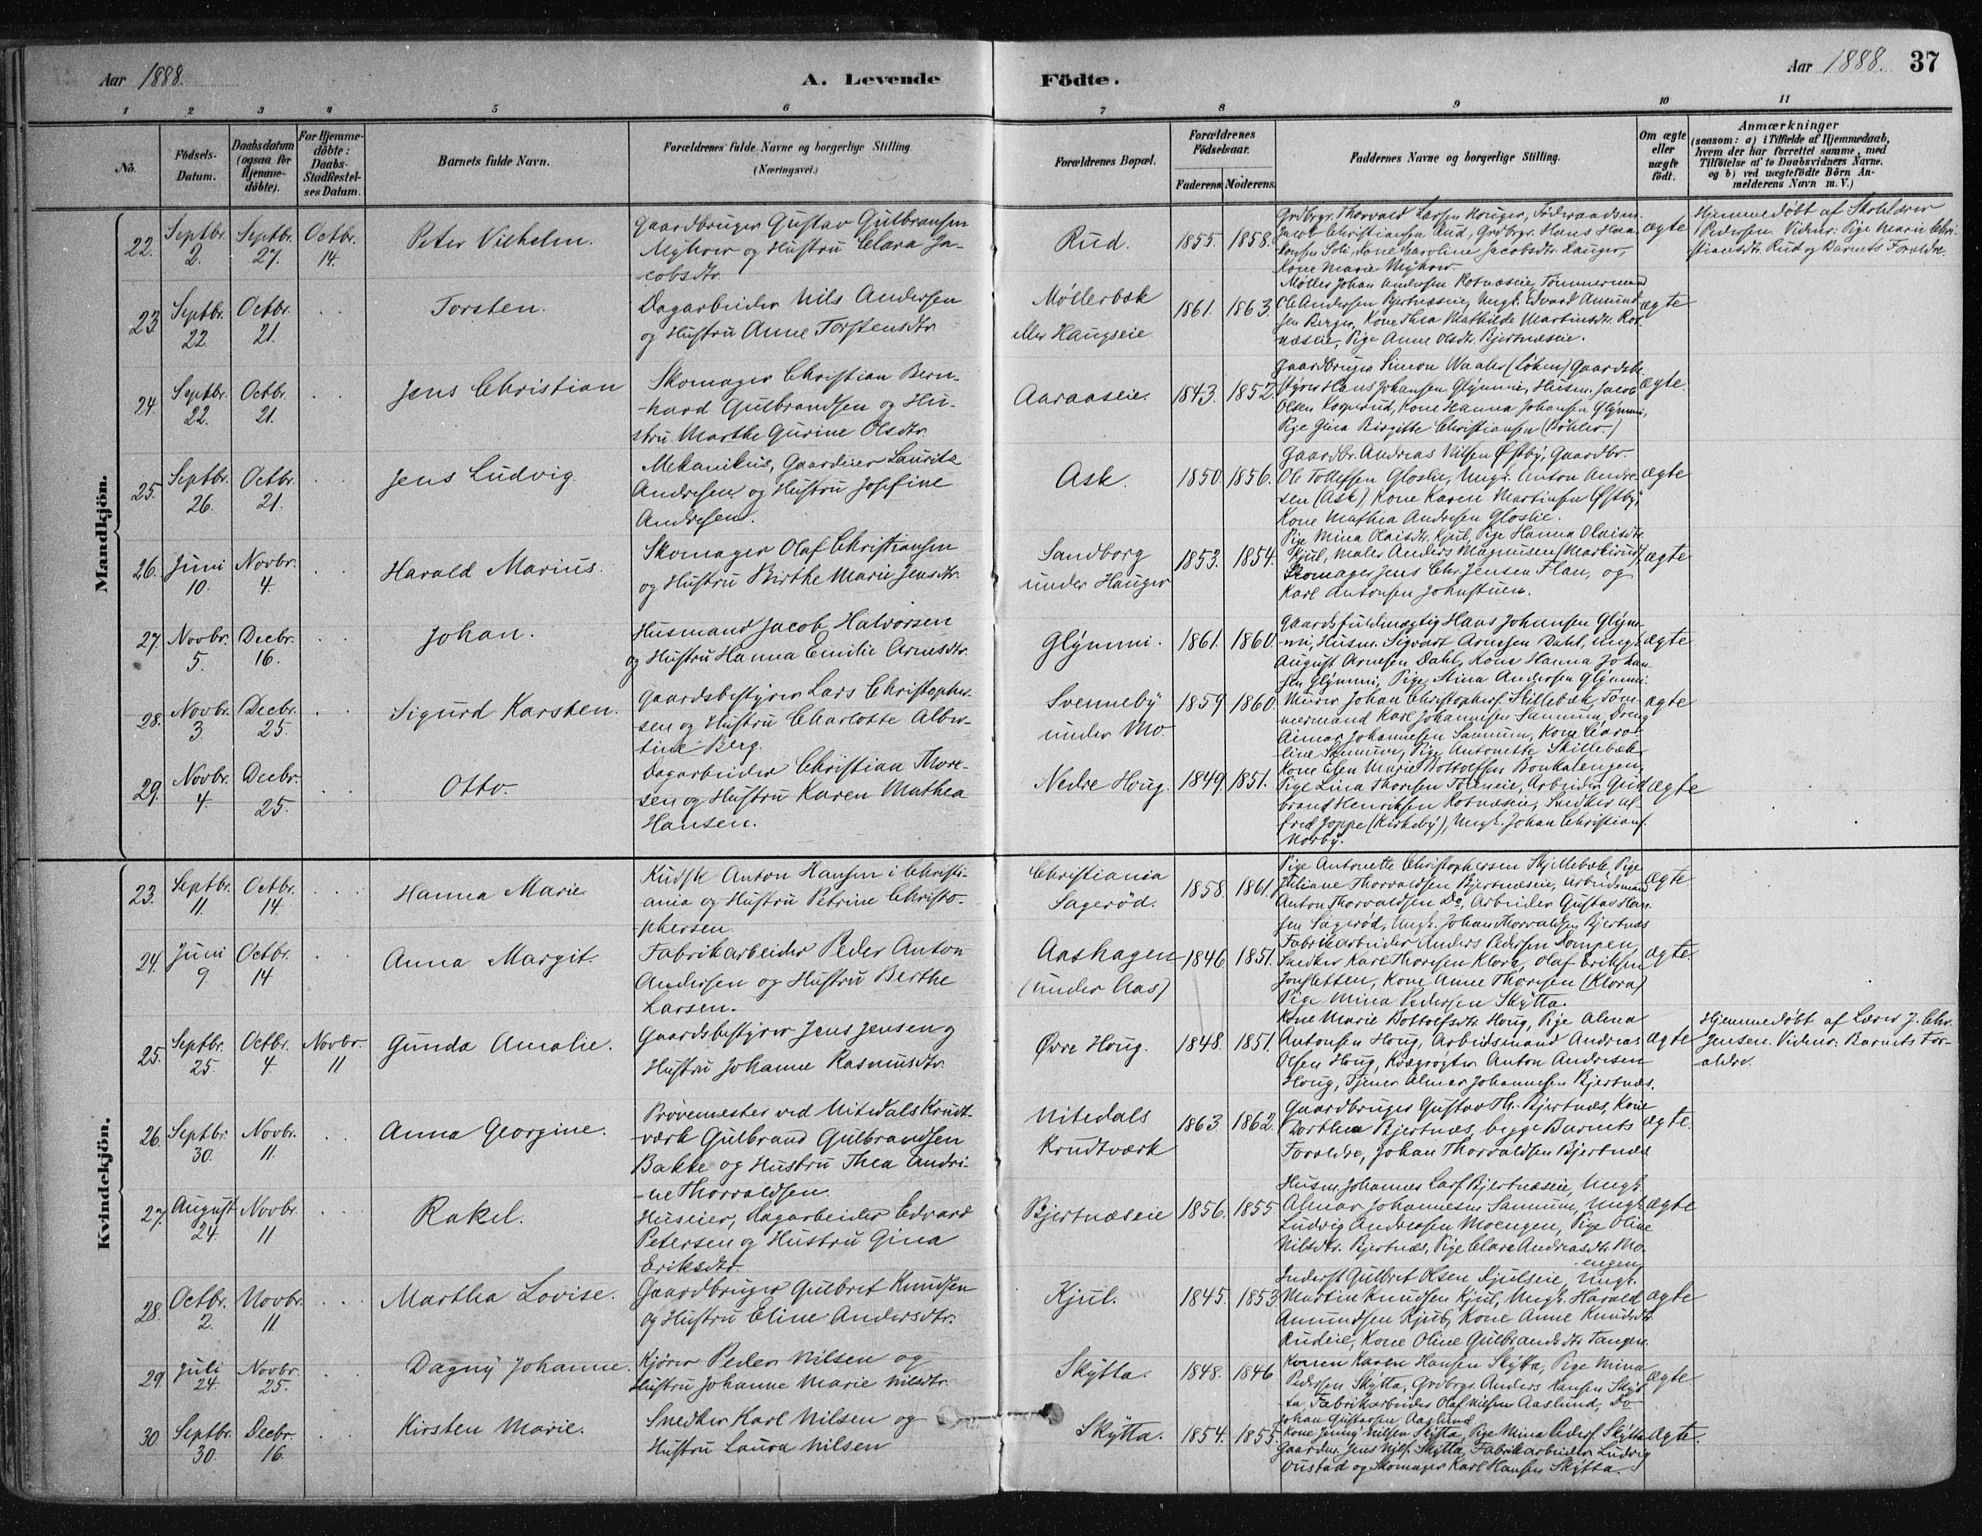 Aar 1888.
A. Levende Födte.
Aar 1888. 37
1 2 3 4 5 6 7 8 9 10 11
No.
Födsels-Datum.
Daabsdatum (ogsaa for Hjemme-döbte).
For Hjemme-döbte: Daabs-Stadfæstel-ses Datum.
Barnets fulde Navn.
Forældrenes fulde Navne og borgerlige Stilling. (Næringsvei.)
Forældrenes Bopæl.
Forældrenes Födselsaar.
Faderens. Moderens.
Faddernes Navne og borgerlige Stilling.
Om ægte eller uægte födt.
Anmærkninger
(saasom: a) i Tilfælde af Hjemmedaab, hvem der har forrettet samme, med Tilföielse af to Daabsvidners Navne. og b) ved uægtefödte Börn An-melderens Navn m. V.)
Mandkjön.
22. Septbr. 2. Septbr. 27. Octbr. 14. Peter Vilhelm.
Gaardbruger Gustav Gulbransen
Myhrer og Hustru Clara Ja-
cobsdtr.
Rud. 1855. 1858.
Grdbrgr. Thorvald Larsen Hauger, Föderaadsm.
Jacob Christiansen Rud, Grdbrgr. Hans Haa-
konsen Sole, Kone Karoline Jacobsdtr. Hauger,
Kone Marie Myhrer.
ægte
Hjemmedøbt af Skolelærer
Pedersen. Vidner: Pige Marie Chri-
stiansdtr. Rud og Barnets Forældre.
23. Septbr. 22. Octbr. 21. Torsten.
Dagarbeider Nils Andersen
og Hustru Anne Torstensdtr.
Møllerbæk
eller Haugseie. 1861. 1863.
Møller Johan Andersen Rotnæseie, Tømmermand
Ole Andersen Bjertnæseie, Ungk. Edvard Amund-
sen Berger, Kone Thea Mathilde Martinsdtr. Rot-
næseie, Pige Anne Olsdtr. Bjertnæseie.
ægte
24. Septbr. 22. Octbr. 21. Jens Christian
Skomager Christian Bern-
hard Gulbrandsen og Hu-
stru Marthe Gurine Olsdtr.
Aaraaseie. 1843. 1852.
Gaardbruger Simon Waaler (Løken) Gaardsbe-
styrer Hans Johansen Glømmi, Husm. Jacob
Olsen Kogerud, Kone Hanna Johansen Glømmi,
Pige Gina Birgitte Christiansen (Bøhler.)
ægte.
25. Septbr. 26. Octbr. 21. Jens Ludvig.
Mekanikus, Gaardeier Lauritz
Andresen og Hustru Josefine
Andresen.
Ask. 1850. 1856.
Gaardbr. Andreas Nilsen Østby, Gaardbr.
Ole Tollefsen Gloslie, Ungk. Anton Andre-
sen (Ask), Kone Karen Martinsen Østby,
Kone Mathea Andresen Gloslie.
ægte
26. Juni 10. Novbr. 4. Harald Marius.
Skomager Olaf Christiansen
og Hustru Birthe Marie Jensdtr.
Sandborg
under Hauger 1853. 1854.
Pige Mina Olaisdtr. Kjul, Pige Hanna Olaisdtr.
Kjul, Maler Anders Magnusen (Markerud),
Skomager Jens Chr. Jensen Flan, og
Karl Antonsen Johnstuen.
ægte
27. Novbr. 5. Decbr. 16. Johan.
Husmand Jacob Halvorsen
og Hustru Hanna Emilie Arnesdtr.
Glömmi. 1861. 1860.
Gaardsfuldmægtig Hans Johansen Glöm-
mi, Husm. Sigvart Arnesen Dahl, Ungk.
August Arnesen Dahl, Kone Hanna Johan-
sen Glömmi, Pige Mina Andersen Glömmi.
ægte
28. Novbr. 3. Decbr. 25. Sigurd Karsten.
Gaardsbestyrer Lars Christopher-
sen og Hustru Charlotte Alber-
tine Berg.
Svenneby
under Mo. 1859 1860.
Murer Johan Christophers. Skillebæk, Töm-
mermand Karl Johannesen Sannum, Dreng
Ainar Johannesen Sannum, Kone Carol-
line Sannum, Pige Antonette Skillebæk.
ægte
29. Novbr. 4. Decbr. 25. Otto.
Dagarbeider Christian Thore-
sen og Hustru Karen Mathea
Hansen.
Nedre Houg. 1849. 1851.
Kone Elen Marie Bottolfsen Bonkalengen,
Pige Lina Thoresen Föreseie, Arbeider Gud-
brand Henriksen Rotnæseie, Snedker Al-
fred Joppe (Kirkeby), Ungk. Johan Christians.
Norby.
ægte
Kvindekjön.
23. Septbr. 11. Octbr. 14. Hanna Marie
Kudsk Anton Hansen i Christi-
ania og Hustru Petrine Christo-
phersen.
Christiania
Sagerød. 1858. 1861.
Pige Antonette Christophersen Skillebæk, Pige
Juliane Thorvaldsen Bjertnæseie, Arbeidsmand
Anton Thorvaldsen Do, Arbeider Gustav Han-
sen Sagerød, Ungk. Johan Thorvaldsen Bjertnæs
ægte
24. Juni 9 Octbr. 14 Anna Margit.
Fabrikarbeider Peder Anton
Andersen og Hustru Berthe
Larsen.
Aashagen
(under Aas) 1846 1851.
Fabrikarbeider Anders Pedersen Kampen,
Snedker Karl Thoresen Klora, Olaf Eriksen
Jonsletten, Kone Anne Thoresen (Klora)
Pige Mina Pedersen Skytta.
ægte
25. Septbr. 25. Octbr. 4 Novbr. 11 Gunda Amalie.
Gaardsbestyrer Jens Jensen og
Hustru Johanne Rasmusdtr.
Øvre Houg. 1848. 1851.
Kone Marie Bottolfsdtr. Houg, Pige Alma
Antonsen Houg, Arbeidsmand Andreas
Olsen Houg, Kvægrøgter Anton Andresen
Houg, Tjener Almar Johannesen Bjertnæs.
ægte
Hjemmedøbt af Lærer J. Chr.
Jensen. Vidner: Barnets For-
ældre.
26. Septbr. 30. Novbr. 11. Anna Georgine.
Prøvemester ved Nitedals Krudt-
værk Gulbrand Gulbrandsen
Bakke og Hustru Thea Andri-
ne Thorvaldsen.
Nitedals
Krudtværk 1863 1862.
Gaardbruger Gustav Th. Bjertnæs, Kone
Dorthea Bjertnæs, begge Barnets
Forældre, Johan Thorvaldsen Bjertnæs
ægte.
27. August 24 Novbr. 11 Rakel.
Huseier, Dagarbeider Edvard
Petersen og Hustru Gina
Eriksdtr.
Bjertnæseie 1856. 1855
Husm. Johannes Lars. Bjertnæseie, Ungk.
Almar Johannesen Sannum, Ungk.
Ludvig Andreasen Moengen, Pige Oline
Nilsdtr. Bjertnæs, Pige Clara Andreasdtr. Mo-
engen.
ægte
28. Octbr. 2. Novbr. 11. Martha Lovise.
Gaardbruger Gulbret Knudsen
og Hustru Eline Andersdtr.
Kjul. 1845. 1853
Inderst Gulbret Olsen Kjulseie, Ungk.
Martin Knudsen Kjul, Ungk. Harald
Amundsen Kjul, Kone Anne Knudsdtr.
Rudeie, Kone Oline Gulbrandsdtr. Tangen.
ægte
29 Juli 24. Novbr. 25. Dagny Johanne.
Kjører Peder Nilsen og
Hustru Johanne Marie Nilsdtr.
Skytta. 1848. 1846
Konen Karen Hansen Skytta, Pige Mina
Pedersen Skytta, Grdbrgr. Anders Hansen Skyt-
ta, Fabrikarbeider Olaf Nilsen Aaslund, Do
Johan Gustavsen Aaslund
ægte
30 Septbr. 30. Decbr. 16. Kirsten Marie.
Snedker Karl Nilsen og
Hustru Laura Nilsen
Skytta. 1854. 1855.
Kone Jenny Nilsen Skytta, Pige Mina Peders. Skytta
Gaardbr. Jens Nils. Skytta, Fabrikarbeider Ludvig
Oustad og Skomager Karl Hansen Skytta.
ægte.